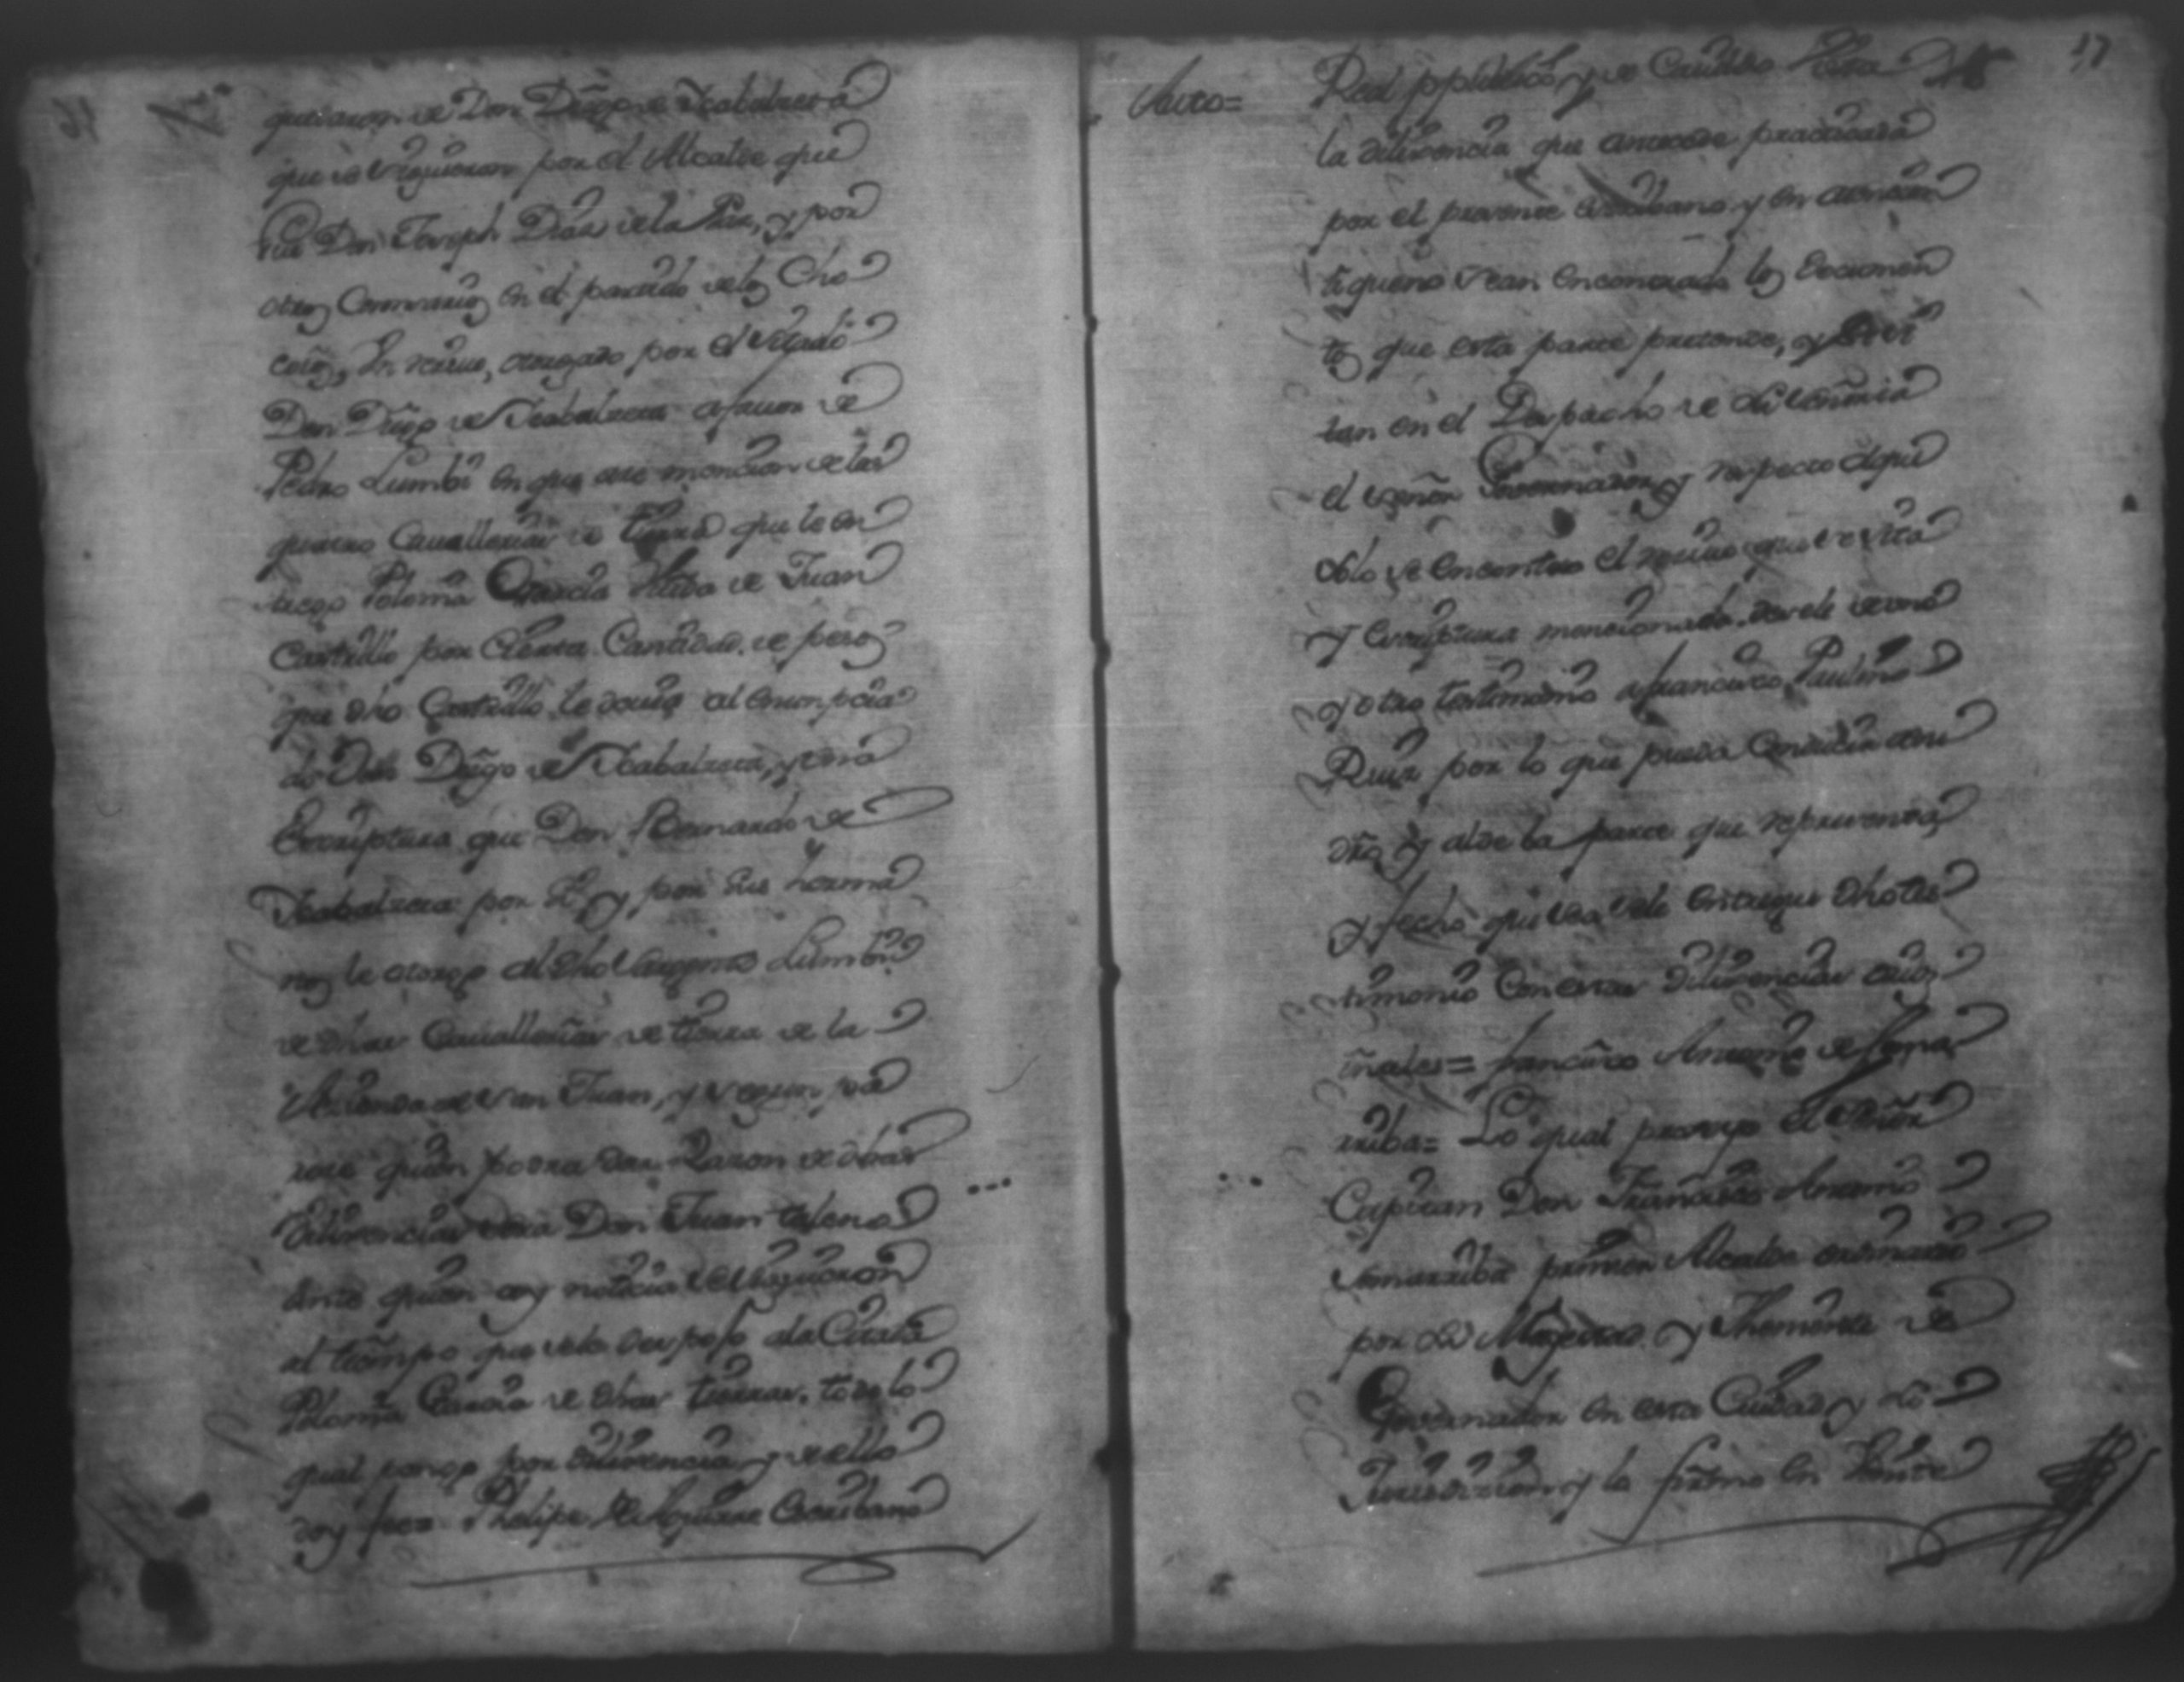 quedaron de Don Diego de Ycabalzeta
que se siguieron por el Alcalde que
fue Don Joseph Diaz de la Paz, y por
otros Comisarios en el partido de los Cho
cois, Un reciuo, otorgado por el citado
Don Diego de Ycabalzeta a fauor de
Pedro Lumbi en que ase mencion de las
quatro Cauallerias de tierra que le en
trego Polonia Garcia Viuda de Juan
Castrillo por Cierta Cantidad de pesos
que dho Castrillo le deuia al enunpcia
do Don Diego de Ycabalzeta, y una
Escriptura que Don Bernardo de
Ycabalzeta por Si, y por sus herma
nos le otorgo al dho Lumbi
de dhas Cauallerias de tierra de la
Asienda de San Juan, y segun
quien podra dar Razon de dhas
diligencias sera Don Juan
quien ay noticia se siguieron
al tiempo que se le des pojo a la Citada
Polonia Garcia de dhas tierras. todo lo
qual pongo por diligencia, y de ello
doy fee = Phelipe de Aguirre Escribano
17
Auto=
Real ppublico, y de Cauildo = Vista
la diligencia que antecede practicada
por el presente escribano, y en atencion
a que no sean encontrado los Documen
tos que esta parte pretende, y
tan en el Despacho de su Señoria
el Señor Gouernador, y respecto a que
solo se encontro el reciuo que se cita
y Escriptura mencionada. desele de uno
y otro testimonio a francisco Paulino
Ruiz por lo que pueda Conducir a su
dro, y al de la parte que representa,
y fecho que sea se le entregue dho tes
timonio Con estas diligencias orig
inales = francisco Antonio de Sama
rriba = Lo qual proveyo el Señor
Capitan Don Francisco Antonio
Samarriba primer Alcalde ordinario
por Su Magestad, y Theniente de
Gouernador en esta Ciudad, y su
Jurisdiccion, y lo firmo en Veinte